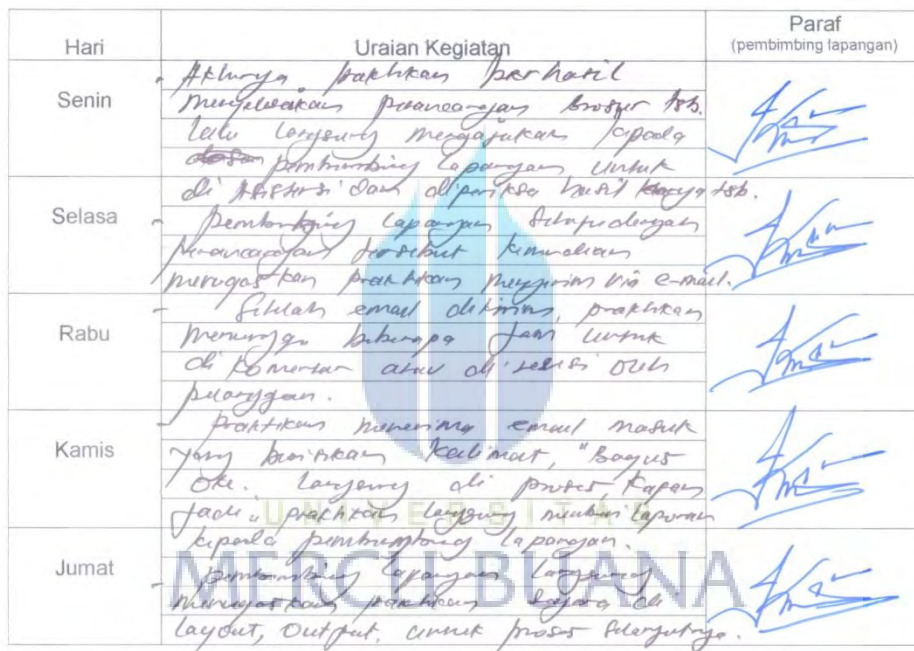 Hari Uraian Kegiatan Paraf
(pembimbing lapangan)
Senin
- Akhirnya praktikan berhasil
menyelesaikan perancangan brosur tsb.
lalu langsung mengajukan kepada
pembimbing lapangan untuk
di asistensi dan diperiksa hasil karya tsb.
Selasa
- pembimbing lapangan setuju dengan
perancangan tersebut kemudian
menugaskan praktikan mengirim via e-mail.
Rabu
- Setelah email dikirim, praktikan
menunggu beberapa jam untuk
di komentar atau di revisi oleh
pelanggan.
Kamis
- praktikan menerima email masuk
yang berisikan kalimat, "Bagus
oke. langsung di proses, kapan
jadi" praktikan langsung membuat laporan
kepada pembimbing lapangan.
Jumat
- pembimbing lapangan langsung
menugaskan praktikan segera di
layout, output, untuk proses selanjutnya.
UNIVERSITAS
MERCU BUANA